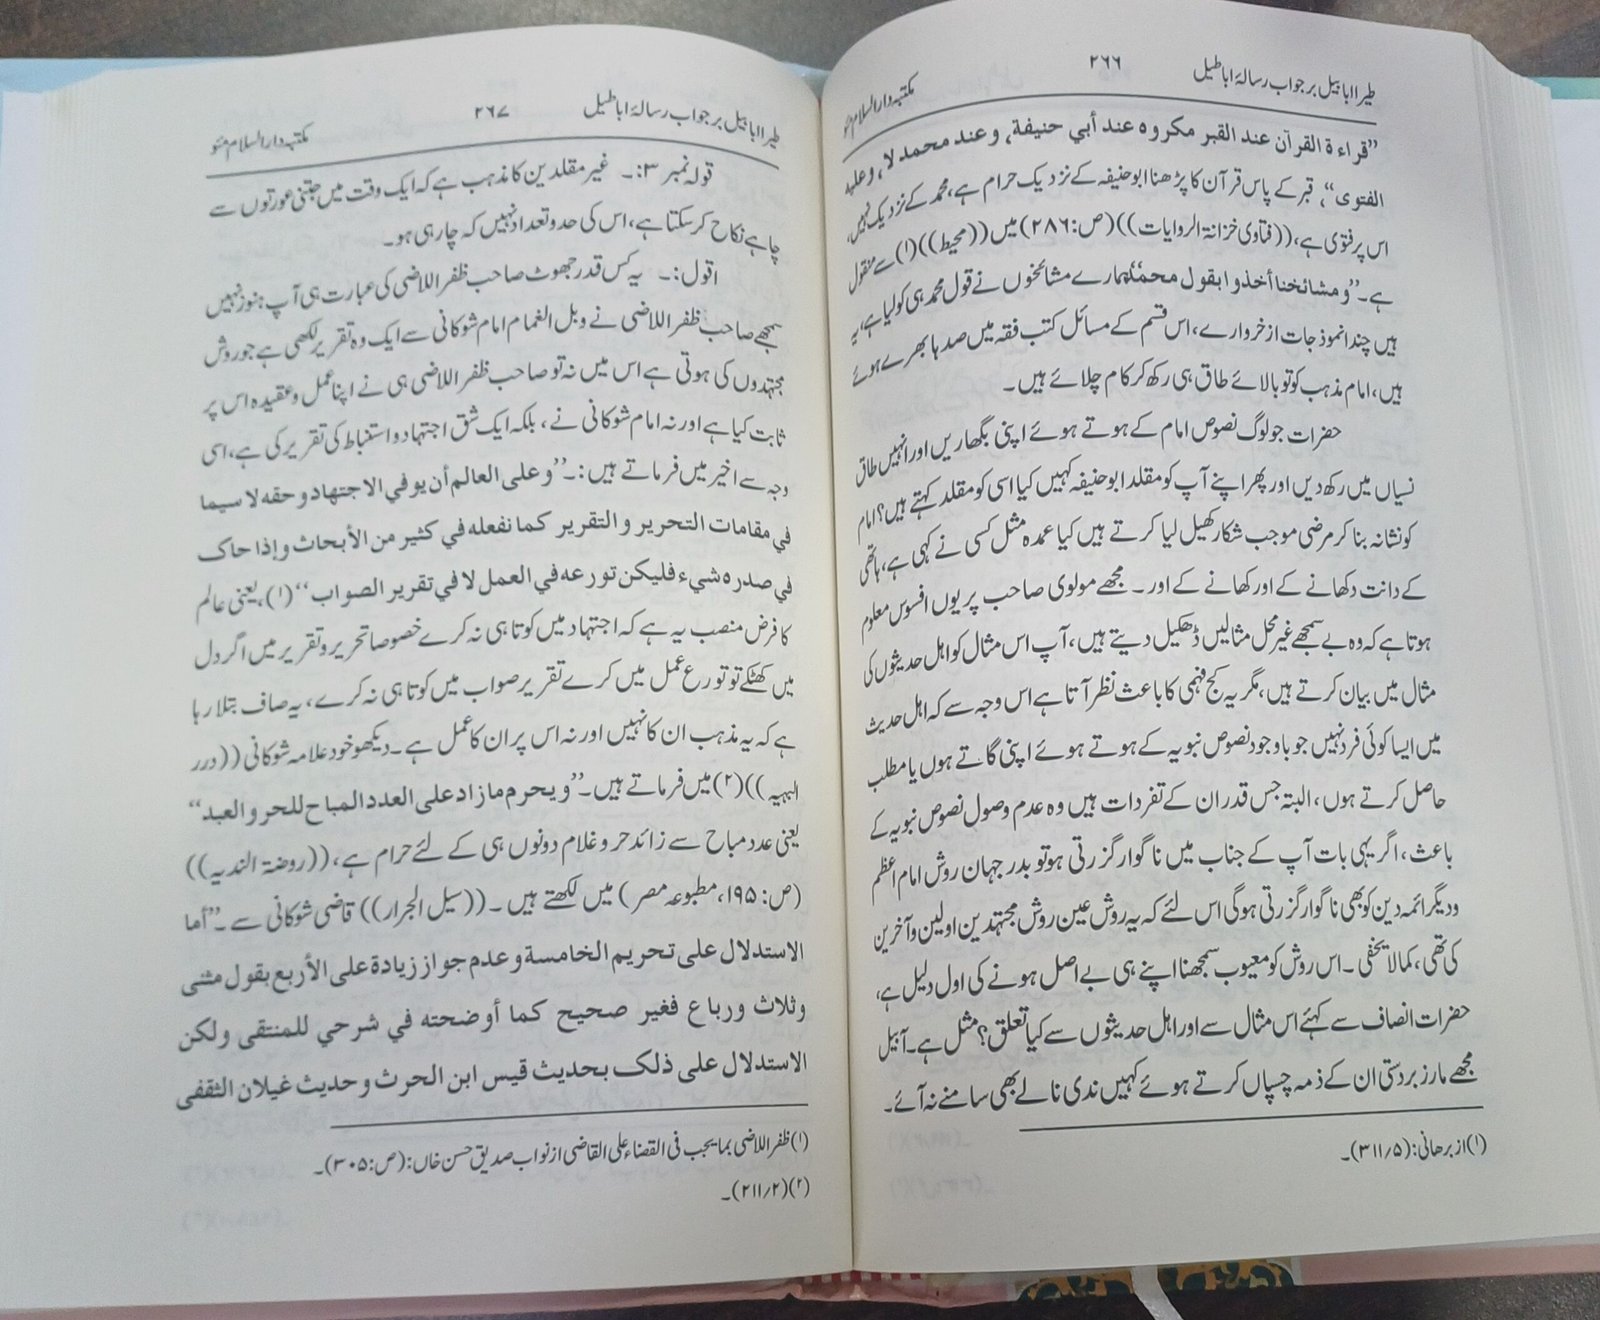 طیرا ابابیل بر جواب رسالۂ اباطیل ۲۶۶ مکتبہ دار السلام مئو
”قراءة القرآن عند القبر مكروه عند أبي حنيفة، وعند محمد لا، وعليه
الفتوى“، قبر کے پاس قرآن کا پڑھنا ابوحنیفہ کے نزدیک حرام ہے، محمد کے نزدیک نہیں،
اس پر فتوی ہے، ((فتاوی خزانۃ الروایات)) (ص: ۲۸۶) میں ((محیط)) (۱) سے منقول
ہے۔ ”ومشائخنا أخذوا بقول محمد“ ہمارے مشائخوں نے قول محمد ہی کو لیا ہے، یہ
ہیں چند انموذجات از خروارے، اس قسم کے مسائل کتب فقہ میں صدہا بھرے ہوئے
ہیں، امام مذہب کو تو بالائے طاق ہی رکھ کر کام چلائے ہیں۔
حضرات جو لوگ نصوص امام کے ہوتے ہوئے اپنی بگھاریں اور انہیں طاق
نسیاں میں رکھ دیں اور پھر اپنے آپ کو مقلد ابوحنیفہ کہیں کیا اسی کو مقلد کہتے ہیں؟ امام
کو نشانہ بنا کر مرضی موجب شکار کھیل لیا کرتے ہیں کیا عمدہ مثل کسی نے کہی ہے، ہاتھی
کے دانت دکھانے کے اور کھانے کے اور۔ مجھے مولوی صاحب پر یوں افسوس معلوم
ہوتا ہے کہ وہ بے سمجھے غیر محل مثالیں ڈھکیل دیتے ہیں، آپ اس مثال کو اہل حدیثوں کی
مثال میں بیان کرتے ہیں، مگر یہ کج فہمی کا باعث نظر آتا ہے اس وجہ سے کہ اہل حدیث
میں ایسا کوئی فرد نہیں جو باوجود نصوص نبویہ کے ہوتے ہوئے اپنی گاتے ہوں یا مطلب
حاصل کرتے ہوں، البتہ جس قدر ان کے تفردات ہیں وہ عدم وصول نصوص نبویہ کے
باعث، اگر یہی بات آپ کے جناب میں ناگوار گزرتی ہو تو بدر جہان روش امام اعظم
ودیگر ائمہ دین کو بھی ناگوار گزرتی ہوگی اس لئے کہ یہ روش عین روش مجتہدین اولین وآخرین
کی تھی، کمالا یخفی۔ اس روش کو معیوب سمجھنا اپنے ہی بے اصل ہونے کی اول دلیل ہے،
حضرات انصاف سے کہئے اس مثال سے اور اہل حدیثوں سے کیا تعلق؟ مثل ہے۔ آبیل
مجھے مار زبردستی ان کے ذمہ چسپاں کرتے ہوئے کہیں ندی نالے بھی سامنے نہ آئے۔
(۱) از برھانی: (۵/۳۱۱)۔
طیرا ابابیل بر جواب رسالۂ اباطیل ۲۶۷ مکتبہ دار السلام مئو
قولہ نمبر ۳:۔ غیر مقلدین کا مذہب ہے کہ ایک وقت میں جتنی عورتوں سے
چاہے نکاح کرسکتا ہے، اس کی حد وتعداد نہیں کہ چار ہی ہو۔
اقول:۔ یہ کس قدر جھوٹ صاحب ظفر اللاضی کی عبارت ہی آپ ہنوز نہیں
سمجھے صاحب ظفر اللاضی نے وبل الغمام امام شوکانی سے ایک وہ تقریر لکھی ہے جو روش
مجتہدوں کی ہوتی ہے اس میں نہ تو صاحب ظفر اللاضی ہی نے اپنا عمل وعقیدہ اس پر
ثابت کیا ہے اور نہ امام شوکانی نے، بلکہ ایک شق اجتہاد واستنباط کی تقریر کی ہے، اسی
وجہ سے اخیر میں فرماتے ہیں:۔ ”وعلى العالم أن يوفي الاجتهاد وحقه لا سيما
في مقامات التحرير والتقرير كما نفعله في كثير من الأبحاث وإذا حاك
في صدره شيء فليكن تورعه في العمل لا في تقرير الصواب“ (۱)، یعنی عالم
کا فرض منصب یہ ہے کہ اجتہاد میں کوتاہی نہ کرے خصوصا تحریر وتقریر میں اگر دل
میں کھٹکے تو تورع عمل میں کرے تقریر صواب میں کوتاہی نہ کرے، یہ صاف بتلا رہا
ہے کہ یہ مذہب ان کا نہیں اور نہ اس پر ان کا عمل ہے۔ دیکھو خود علامہ شوکانی ((درر
البہیہ)) (۲) میں فرماتے ہیں۔ ”ويحرم ما زاد على العدد المباح للحر والعبد“
یعنی عدد مباح سے زائد حر وغلام دونوں ہی کے لئے حرام ہے، ((روضۃ الندیہ))
(ص: ۱۹۵، مطبوعہ مصر) میں لکھتے ہیں۔ ((سیل الجرار)) قاضی شوکانی سے۔ ”أما
الاستدلال على تحريم الخامسة وعدم جواز زيادة على الأربع بقول مثنى
وثلاث ورباع فغير صحيح كما أوضحته في شرحي للمنتقى ولكن
الاستدلال على ذلك بحديث قيس ابن الحرث وحديث غيلان الثقفى
(۱) ظفر اللاضی بما یجب فی القضاء علی القاضی از نواب صدیق حسن خاں: (ص: ۳۰۵)۔
(۲) (۲/۲۱۱)۔